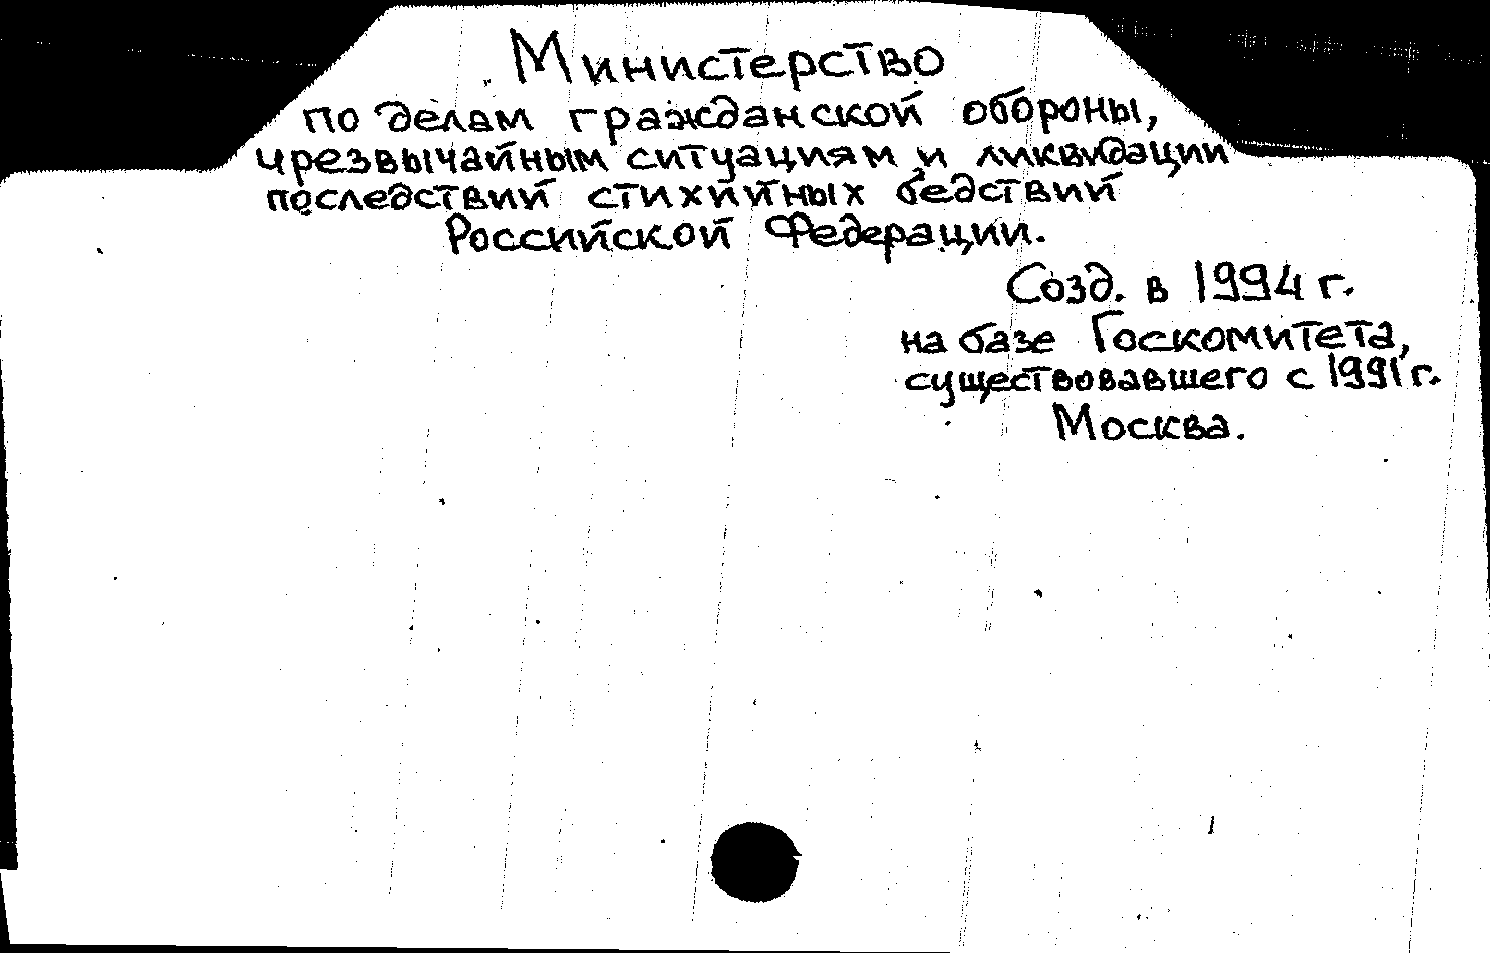 Министерство
по делам гражданской обороны,
чрезвычайным ситуациям и ликвидации
последствий стихийных бедствий
Российской Федерации.
Созд. в 1994 г.
на базе Госкомитета,
существовавшего с 1991 г.
Москва.